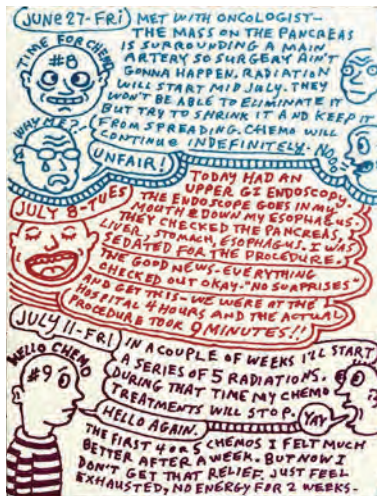 JUNE 27-FRI
MET WITH ONCOLOGIST-
THE MASS ON THE PANCREAS
IS SURROUNDING A MAIN
ARTERY SO SURGERY AIN'T
GONNA HAPPEN. RADIATION
WILL START MID JULY. THEY
WON'T BE ABLE TO ELIMINATE IT
BUT TRY TO SHRINK IT AND KEEP IT
FROM SPREADING. CHEMO WILL
CONTINUE INDEFINITELY.
NOOO
TIME FOR CHEMO
#8
WHY ME?!
UNFAIR!
JULY 8-TUES
TODAY HAD AN
UPPER GI ENDOSCOPY.
THE ENDOSCOPE GOES IN MY
MOUTH & DOWN MY ESOPHAGUS.
THEY CHECKED THE PANCREAS,
LIVER, STOMACH, ESOPHAGUS. I WAS
SEDATED FOR THE PROCEDURE.
THE GOOD NEWS-EVERYTHING
CHECKED OUT OKAY-"NO SURPRISES"
AND GET THIS-WE WERE AT THE
HOSPITAL 4 HOURS AND THE ACTUAL
PROCEDURE TOOK 9 MINUTES!!
JULY 11-FRI
IN A COUPLE OF WEEKS I'LL START
A SERIES OF 5 RADIATIONS.
DURING THAT TIME MY CHEMO
TREATMENTS WILL STOP.
YAY
HELLO CHEMO
#9
HELLO AGAIN.
THE FIRST 4 OR 5 CHEMOS I FELT MUCH
BETTER AFTER A WEEK. BUT NOW I
DON'T GET THAT RELIEF. JUST FEEL
EXHAUSTED, NO ENERGY FOR 2 WEEKS-